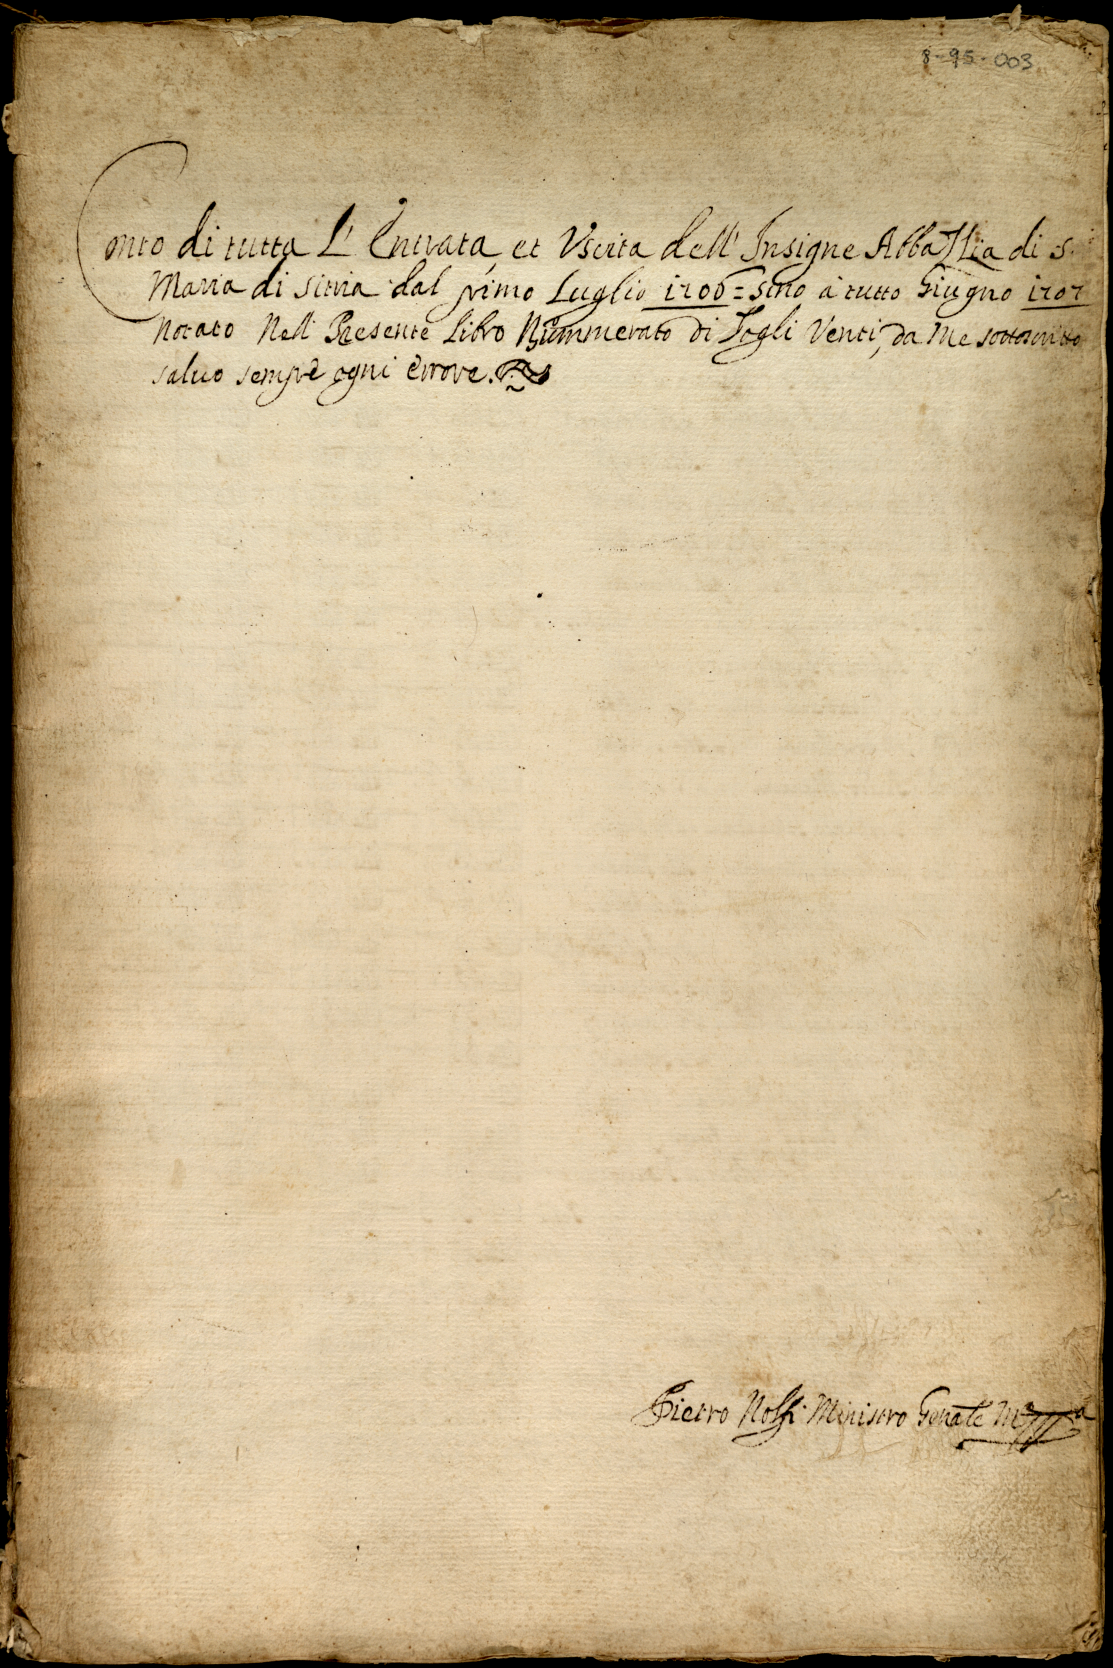 8-95-003
Conto di tutta L' Entrata, et Vscita dell' Insigne Abbatia di S.
Maria di Sitria dal primo Luglio 1706 = sino à tutto Giugno 1707
Notato Nell' Presente Libro Nummerato di Fogli Venti, da Me sottoscritto
saluo sempre ogni errore.
Pietro Nolfi Ministro Genāle